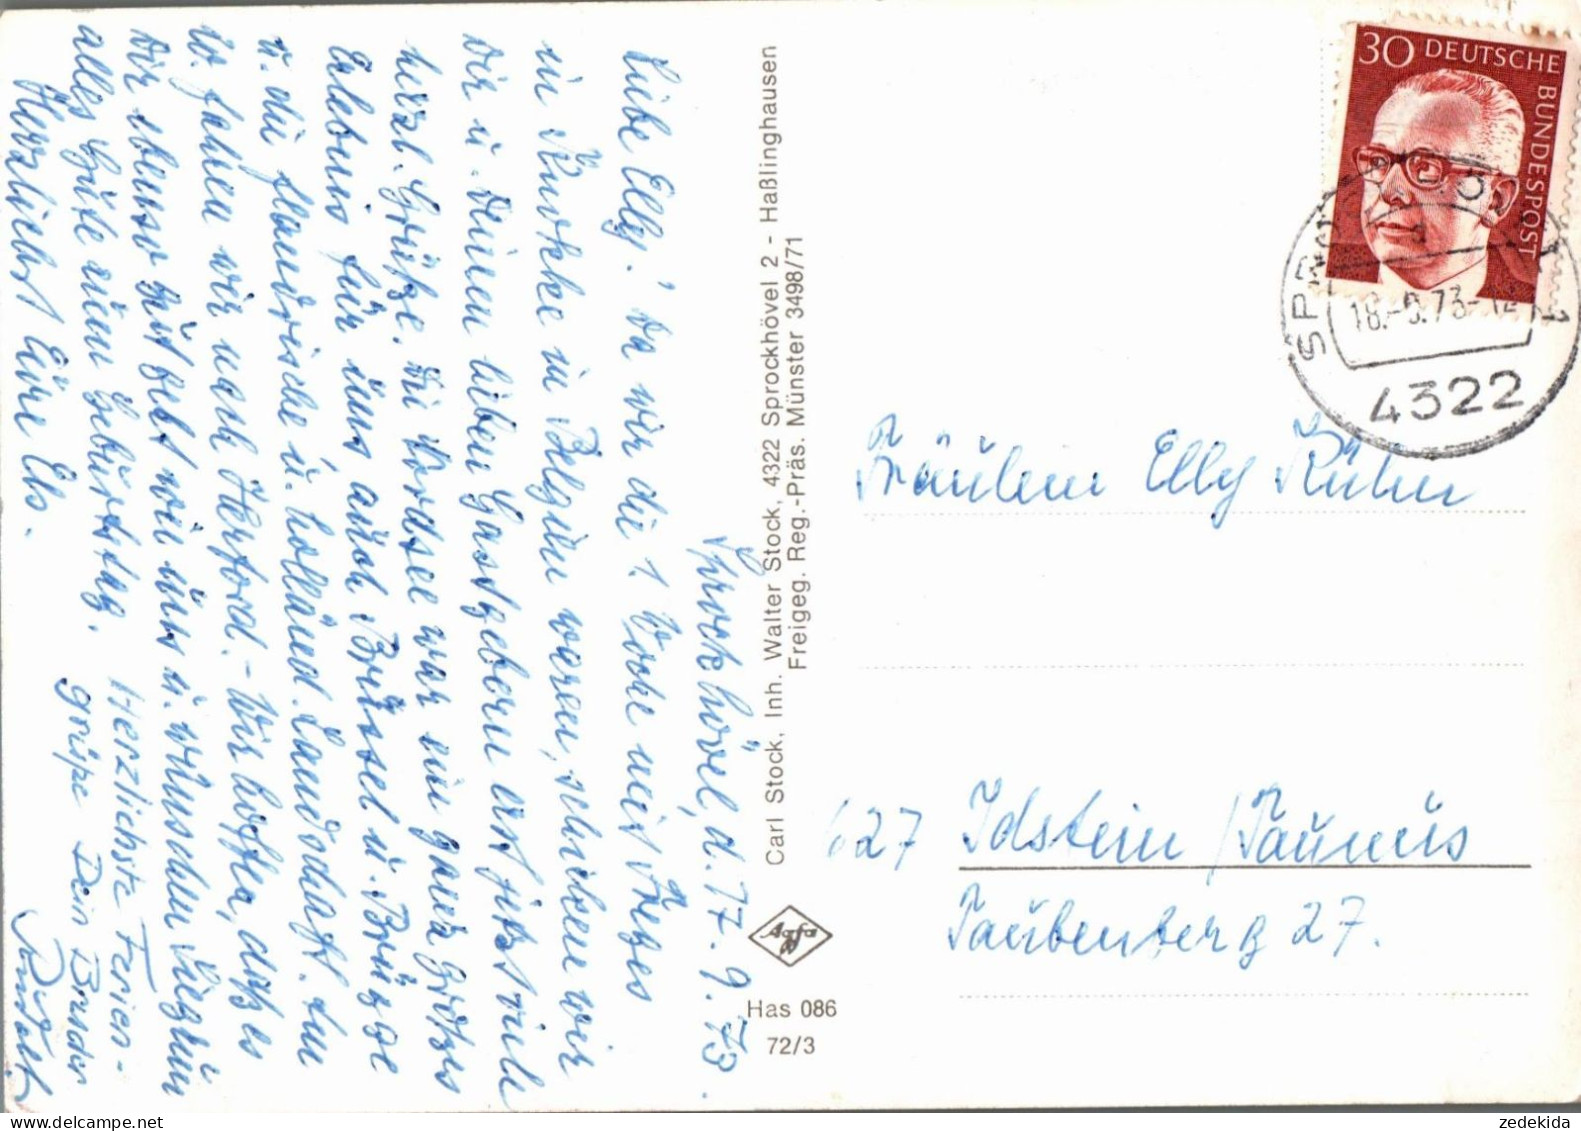 Sprockhövel, d. 17. 9. 73.
Liebe Elly! Da wir die 1. Woche mit Inges
in Knokke in Belgien waren, schicken wir
Dir u. Deinen lieben Gastgebern erst jetzt viele
herzl. Grüße. Die Nordsee war ein ganz großes
Erlebnis für uns auch Brüssel u. Brügge
u. die flandrische u. holländ. Landschaft. Am
fahren wir nach Herford. - Wir hoffen, daß es
Dir ebenso gut geht wie uns u. wünschen
alles Gute zum Geburtstag.
Herzlichst Eure Els.
Herzlichste Ferien-
grüße Dein Bruder
Carl Stock, Inh. Walter Stock, 4322 Sprockhövel 2 - Haßlinghausen
Freigeg. Reg.-Präs. Münster 3498/71
Agfa
Has 086
72/3
30 DEUTSCHE BUNDESPOST
18.-9.73-12
4322
Fräulein Elly Kuhn
627 Idstein / Taunus
Taubenberg 27.
www.delcampe.net
zedekida